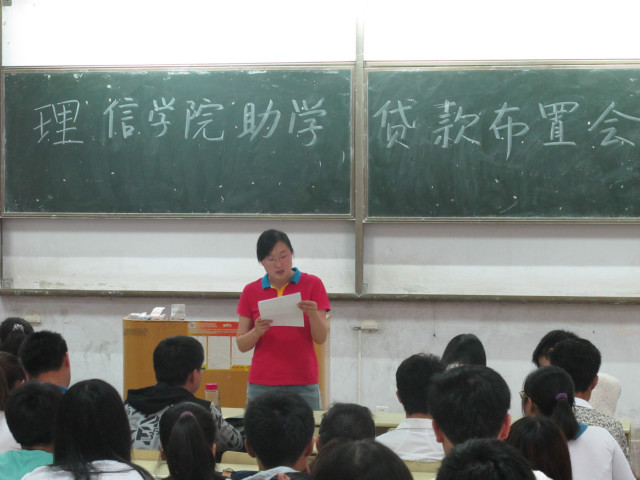 理信学院助学贷款布置会